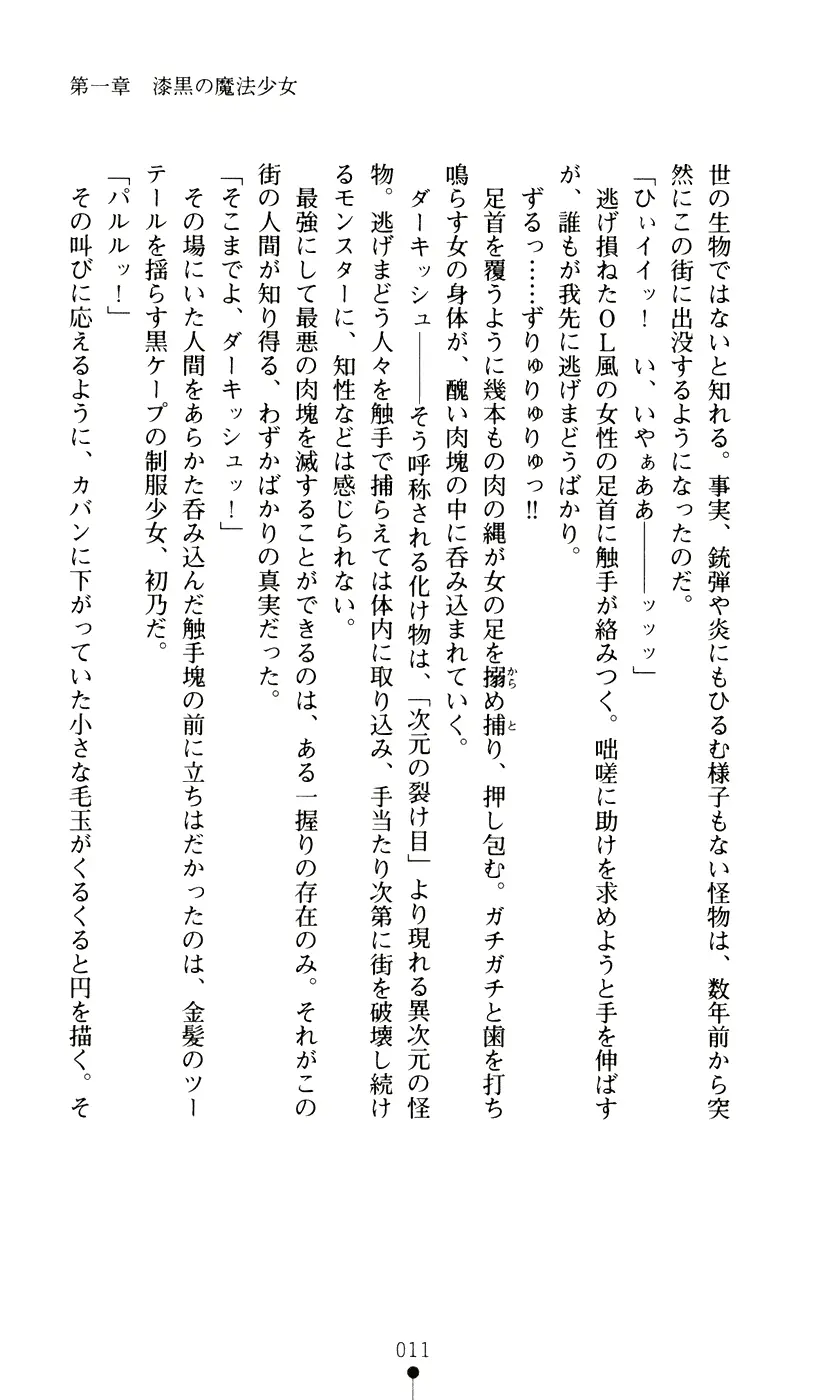 第一章　漆黒の魔法少女
世の生物ではないと知れる。事実、銃弾や炎にもひるむ様子もない怪物は、数年前から突
然にこの街に出没するようになったのだ。
「ひぃイイッ！　い、いやぁああ――ッッッ」
　逃げ損ねたＯＬ風の女性の足首に触手が絡みつく。咄嗟に助けを求めようと手を伸ばす
が、誰もが我先に逃げまどうばかり。
　ずるっ……ずりゅりゅりゅっ!!
　足首を覆うように幾本もの肉の縄が女の足を搦め捕り、押し包む。ガチガチと歯を打ち
鳴らす女の身体が、醜い肉塊の中に呑み込まれていく。
　ダーキッシュ――そう呼称される化け物は、「次元の裂け目」より現れる異次元の怪
物。逃げまどう人々を触手で捕らえては体内に取り込み、手当たり次第に街を破壊し続け
るモンスターに、知性などは感じられない。
　最強にして最悪の肉塊を滅することができるのは、ある一握りの存在のみ。それがこの
街の人間が知り得る、わずかばかりの真実だった。
「そこまでよ、ダーキッシュッ！」
　その場にいた人間をあらかた呑み込んだ触手塊の前に立ちはだかったのは、金髪のツー
テールを揺らす黒ケープの制服少女、初乃だ。
「パルルッ！」
　その叫びに応えるように、カバンに下がっていた小さな毛玉がくるくると円を描く。そ
011